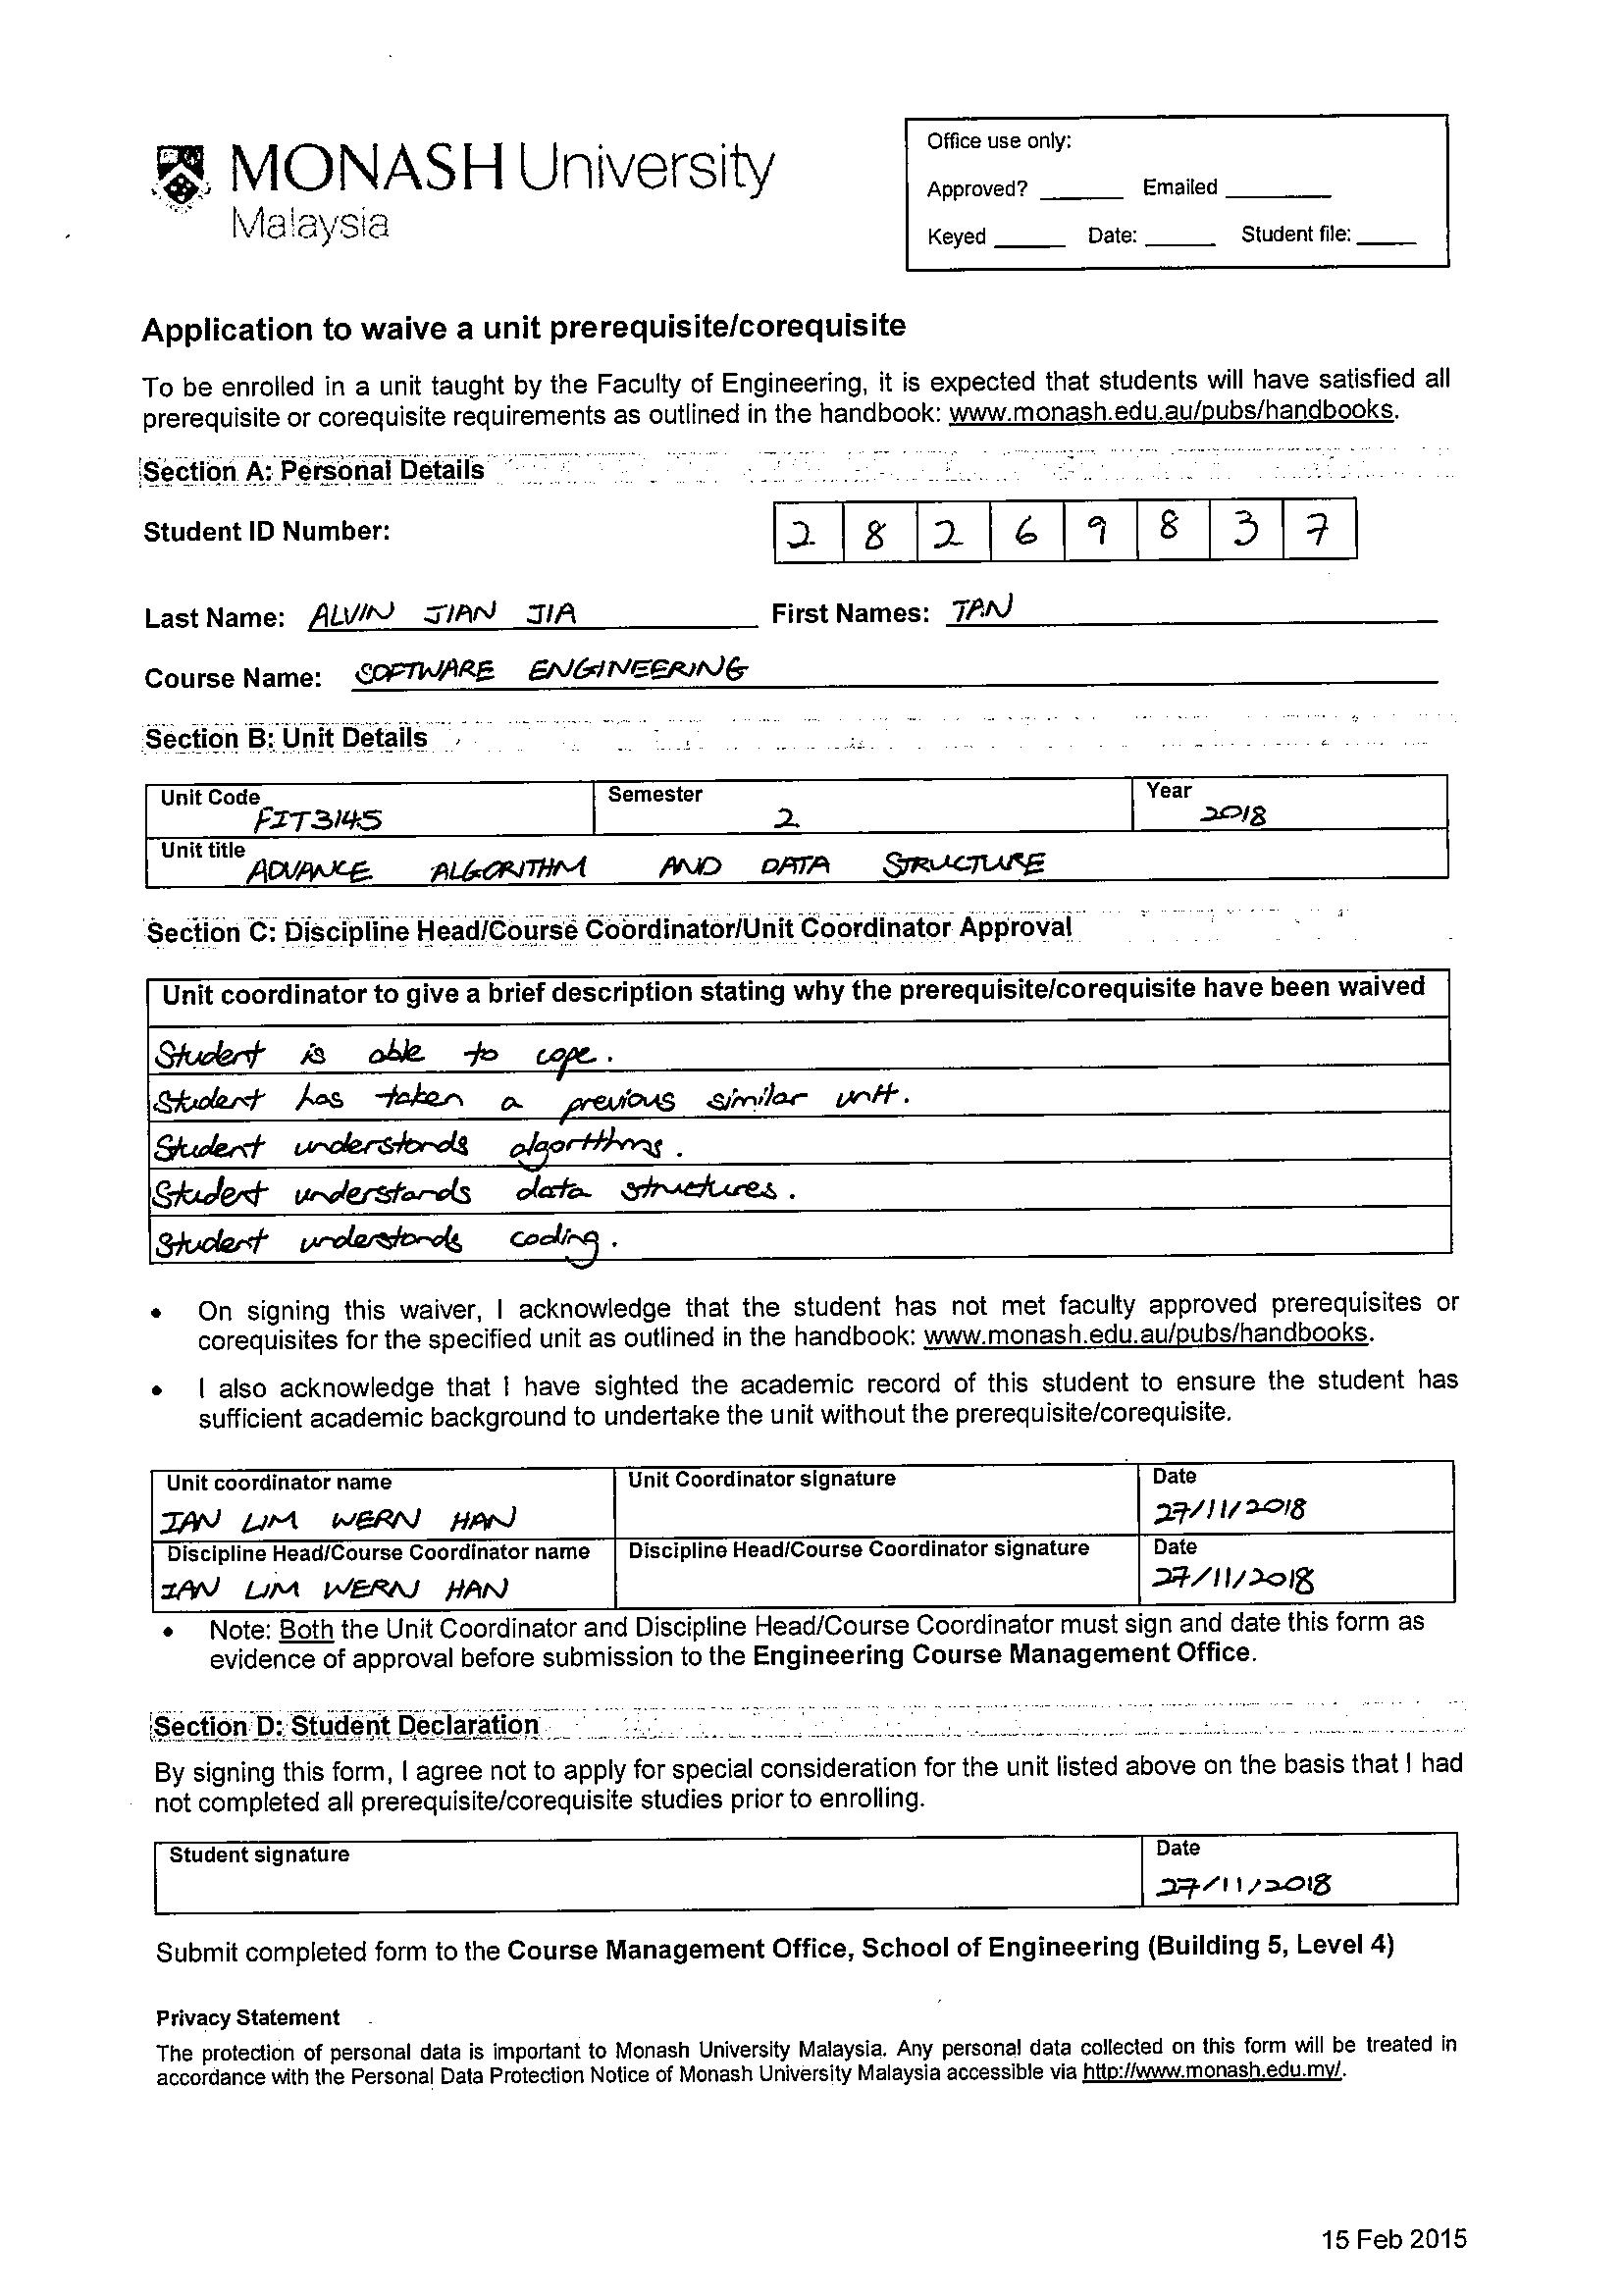 MONASH University
Malaysia
Office use only:
Approved? ______ Emailed ______
Keyed ______ Date: ______ Student file: ______
Application to waive a unit prerequisite/corequisite
To be enrolled in a unit taught by the Faculty of Engineering, it is expected that students will have satisfied all
prerequisite or corequisite requirements as outlined in the handbook: www.monash.edu.au/pubs/handbooks.
Section A: Personal Details
Student ID Number: 2 8 2 6 9 8 3 7
Last Name: ALVIN JIAN JIA First Names: TAN
Course Name: SOFTWARE ENGINEERING
Section B: Unit Details
Unit Code Semester Year
FIT3145 2 2018
Unit title
ADVANCE ALGORITHM AND DATA STRUCTURE
Section C: Discipline Head/Course Coordinator/Unit Coordinator Approval
Unit coordinator to give a brief description stating why the prerequisite/corequisite have been waived
Student is able to cope.
Student has taken a previous similar unit.
Student understands algorithms.
Student understands data structures.
Student understands coding.
• On signing this waiver, I acknowledge that the student has not met faculty approved prerequisites or
corequisites for the specified unit as outlined in the handbook: www.monash.edu.au/pubs/handbooks.
• I also acknowledge that I have sighted the academic record of this student to ensure the student has
sufficient academic background to undertake the unit without the prerequisite/corequisite.
Unit coordinator name Unit Coordinator signature Date
IAN LIM WERN HAN 27/11/2018
Discipline Head/Course Coordinator name Discipline Head/Course Coordinator signature Date
IAN LIM WERN HAN 27/11/2018
• Note: Both the Unit Coordinator and Discipline Head/Course Coordinator must sign and date this form as
evidence of approval before submission to the Engineering Course Management Office.
Section D: Student Declaration
By signing this form, I agree not to apply for special consideration for the unit listed above on the basis that I had
not completed all prerequisite/corequisite studies prior to enrolling.
Student signature Date
27/11/2018
Submit completed form to the Course Management Office, School of Engineering (Building 5, Level 4)
Privacy Statement
The protection of personal data is important to Monash University Malaysia. Any personal data collected on this form will be treated in
accordance with the Personal Data Protection Notice of Monash University Malaysia accessible via http://www.monash.edu.my/.
15 Feb 2015